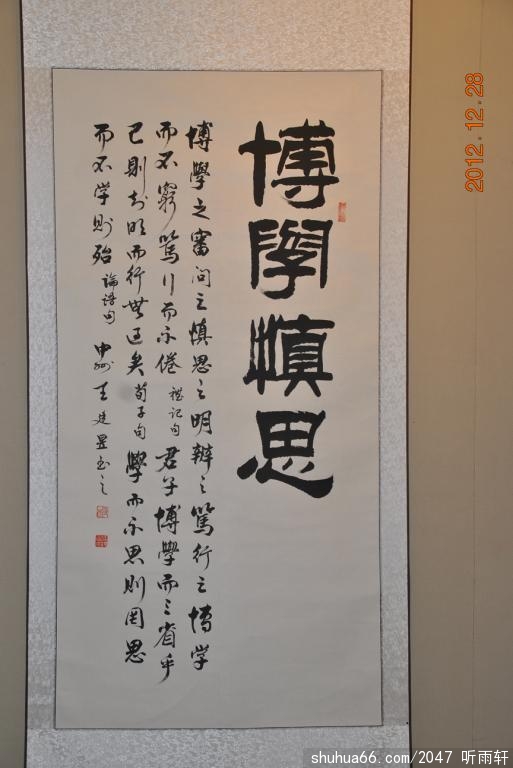 博學慎思
博學之審問之慎思之明辨之篤行之博学
而不窮篤行而不倦 禮记句 君子博學而三省乎
己則知明而行無过矣 荀子句 學而不思則罔思
而不学則殆 論語句 中州王建昱书之
2012.12.28
shuhua66.com/2047 听雨轩